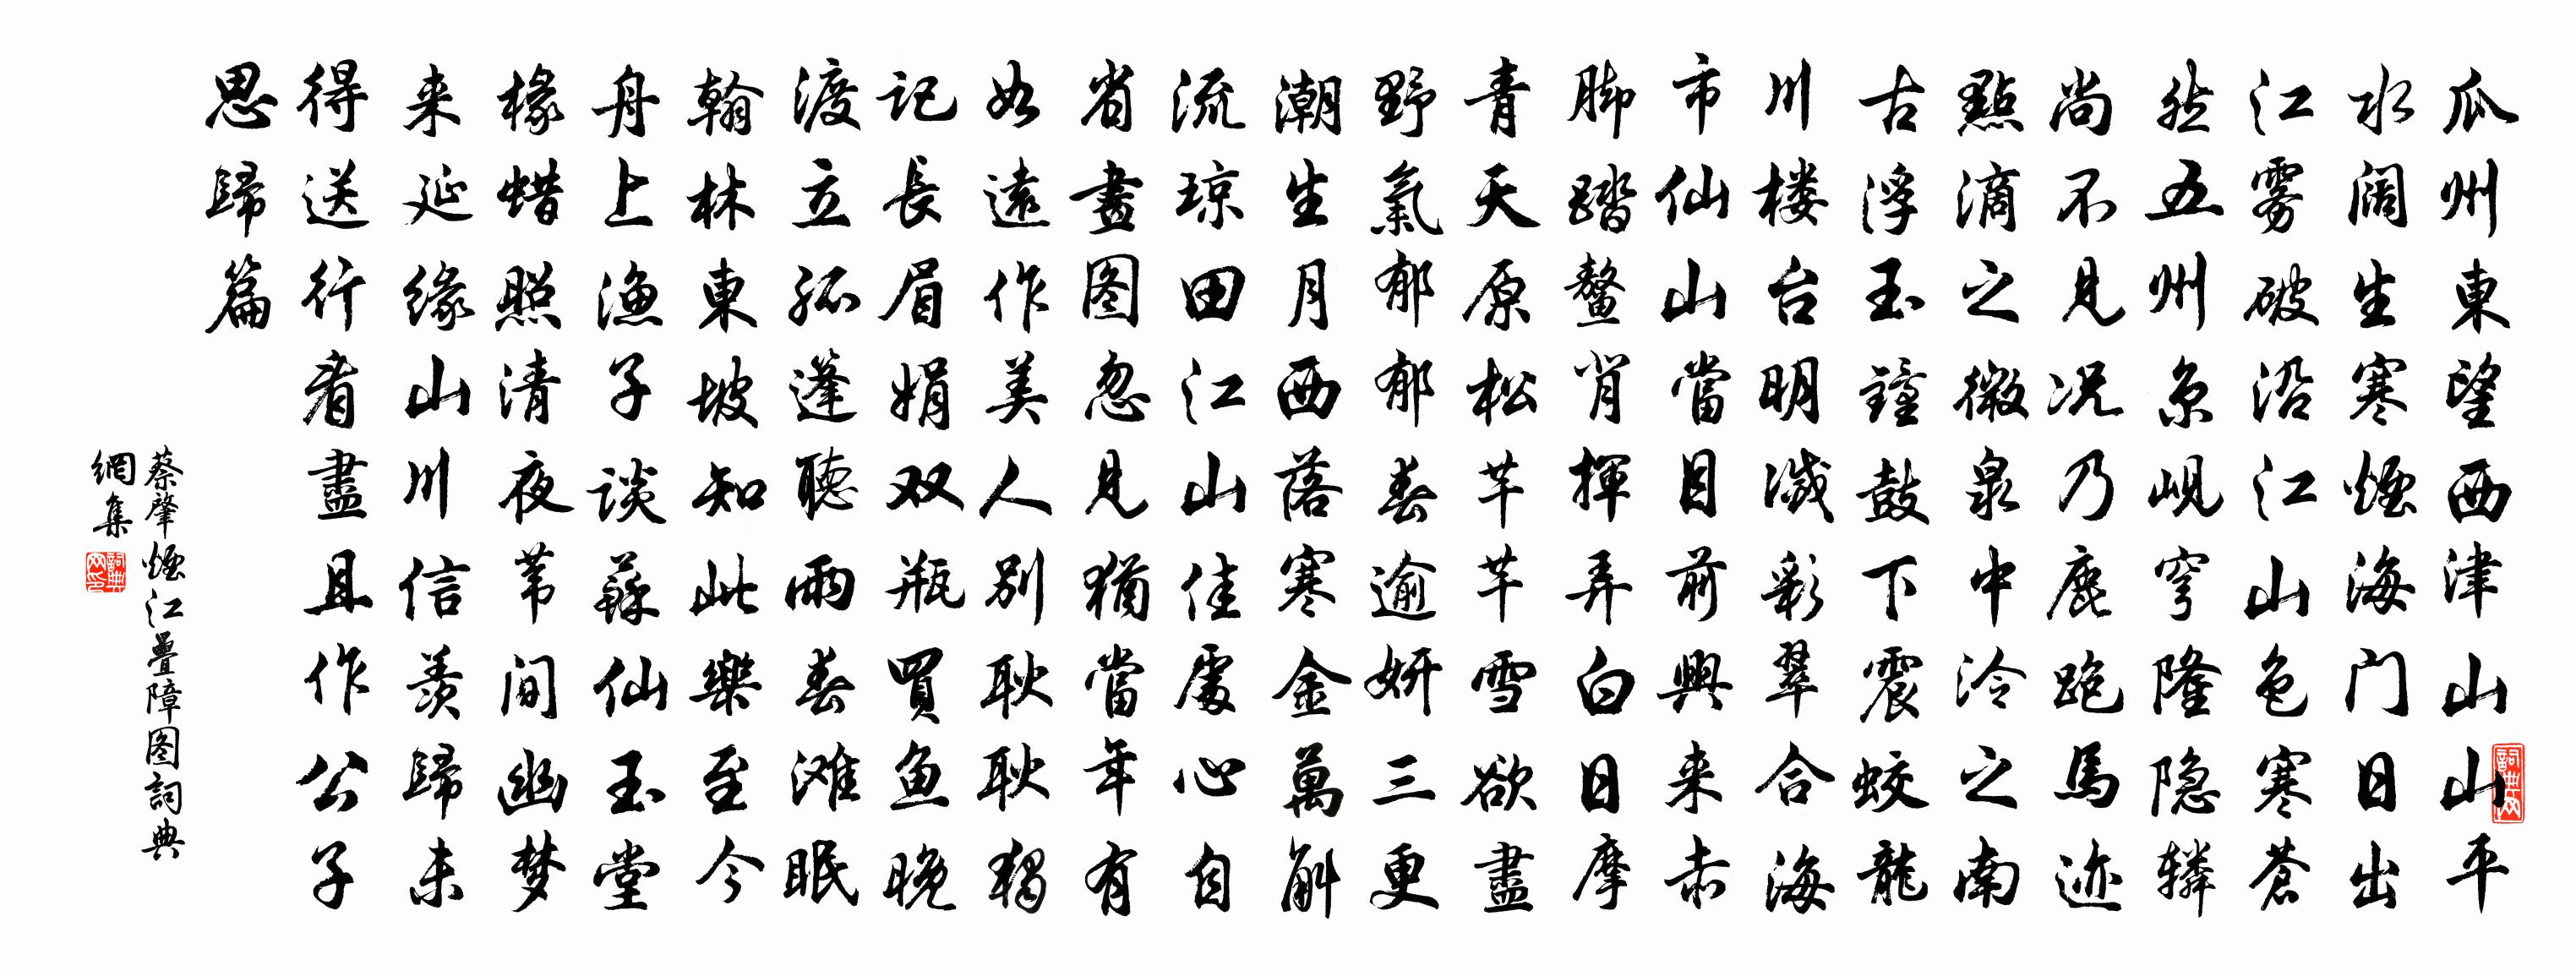 瓜州東望西津山山平
水阔生寒煙海门日出
江雾破沿江山色寒蒼
然五州京岘穹隆隐辚
尚不見况乃鹿跑馬迹
點滴之微泉中泠之南
古浮玉鐘鼓下震蛟龍
川楼台明滅彩翠合海
市仙山當目前興来赤
脚踏鳌肖揮弄白日摩
青天原松芊芊雪欲盡
野氣郁郁春逾妍三更
潮生月西落寒金萬斛
流琼田江山佳處心自
省畫图忽見猶當年有
如遠作美人别耿耿獨
记長眉娟双瓶買鱼晚
渡立孤篷聽雨春滩眠
翰林東坡知此樂至今
舟上漁子談蘇仙玉堂
椽蜡照清夜苇間幽梦
来延缘山川信美歸未
得送行看盡且作公子
思歸篇
蔡肇煙江疊障图詞典
網集
詞典网印
詞典网